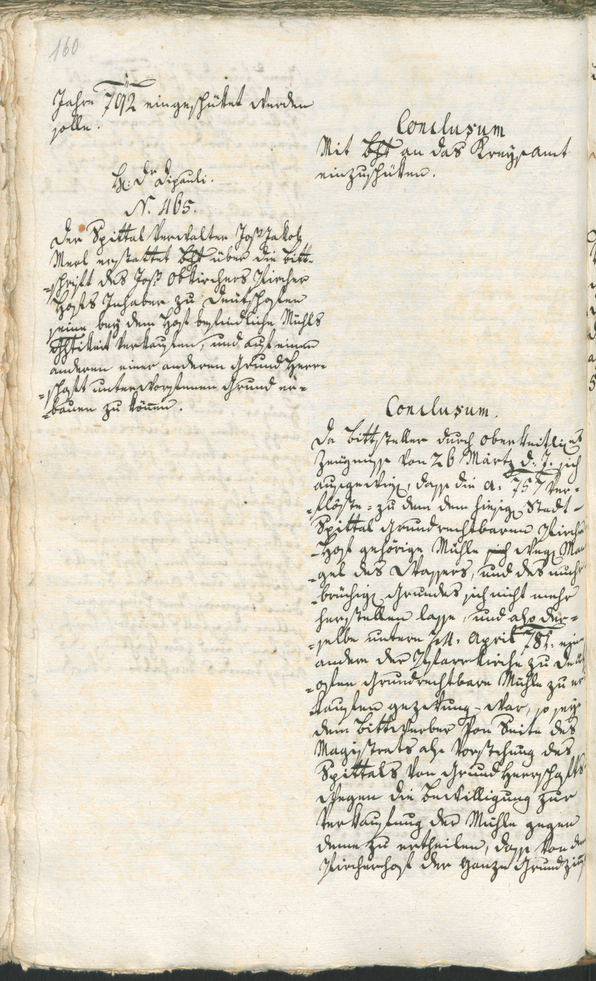 160
Jahrs 792 eingeschüket werden
solle.
Conclusum
Mit Bht an das Kreysamt
einzuschüken.
H. Dr. Dipauli.
N. 465.
Der Spittal Verwalter Jos. Jakob
Merl erstattet Bht über die Bitt-
-schrift des Jos. Obkirchers Kircher
Hofs Inhaber zu Deutschofen
seine bey dem Hof befindliche Mühls
verkaufen, und auf einen
anderen einer anderen Grund Herr-
-schaft unterworfenen Grund er-
-bauen zu können.
Conclusum.
Da Bittsteller durch oberkeitliches
Zeugniss von 26 Märtz d. J. sich
ausgewisen, dass die a. 757 ver-
-löste = zu dem dem hiesig. Stadt-
Spittal Grundrechtbaren Kircher
-Hof gehörige Mühle sich weg. Man
-gel des Wassers, und des
-brüchig Grundes sich nicht mehr
herstellen lasse, und also der-
-selbe untern 24. April 781. eine
andere der Pfarrkirche zu Deutsch
-ofen Grundrechtbare Mühle zu er
-kaufen gezwung- war, so seye
dem Bittwerber von Seite des
Magistrats als Vorstehung des
Spittals von Grund Herrschafts
wegen die Bewilligung zur
Verkaufung der Mühle gegen
deme zu ertheilen, dass von dem
Kircherhof der ganze Grundzins